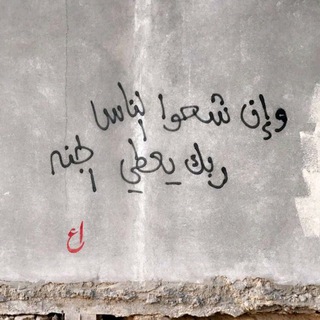 وإن شحوا الناسا
ربك يعطي الجنه
اع